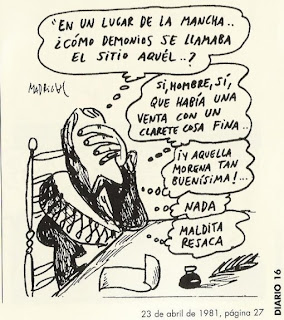 "EN UN LUGAR DE LA MANCHA..
¿CÓMO DEMONIOS SE LLAMABA
EL SITIO AQUÉL..?
MADRIGAL
SI, HOMBRE, SÍ,
QUE HABÍA UNA
VENTA CON UN
CLARETE COSA FINA..
¡Y AQUELLA
MORENA TAN
BUENÍSIMA!...
NADA
MALDITA
RESACA
DIARIO 16
23 de abril de 1981, página 27